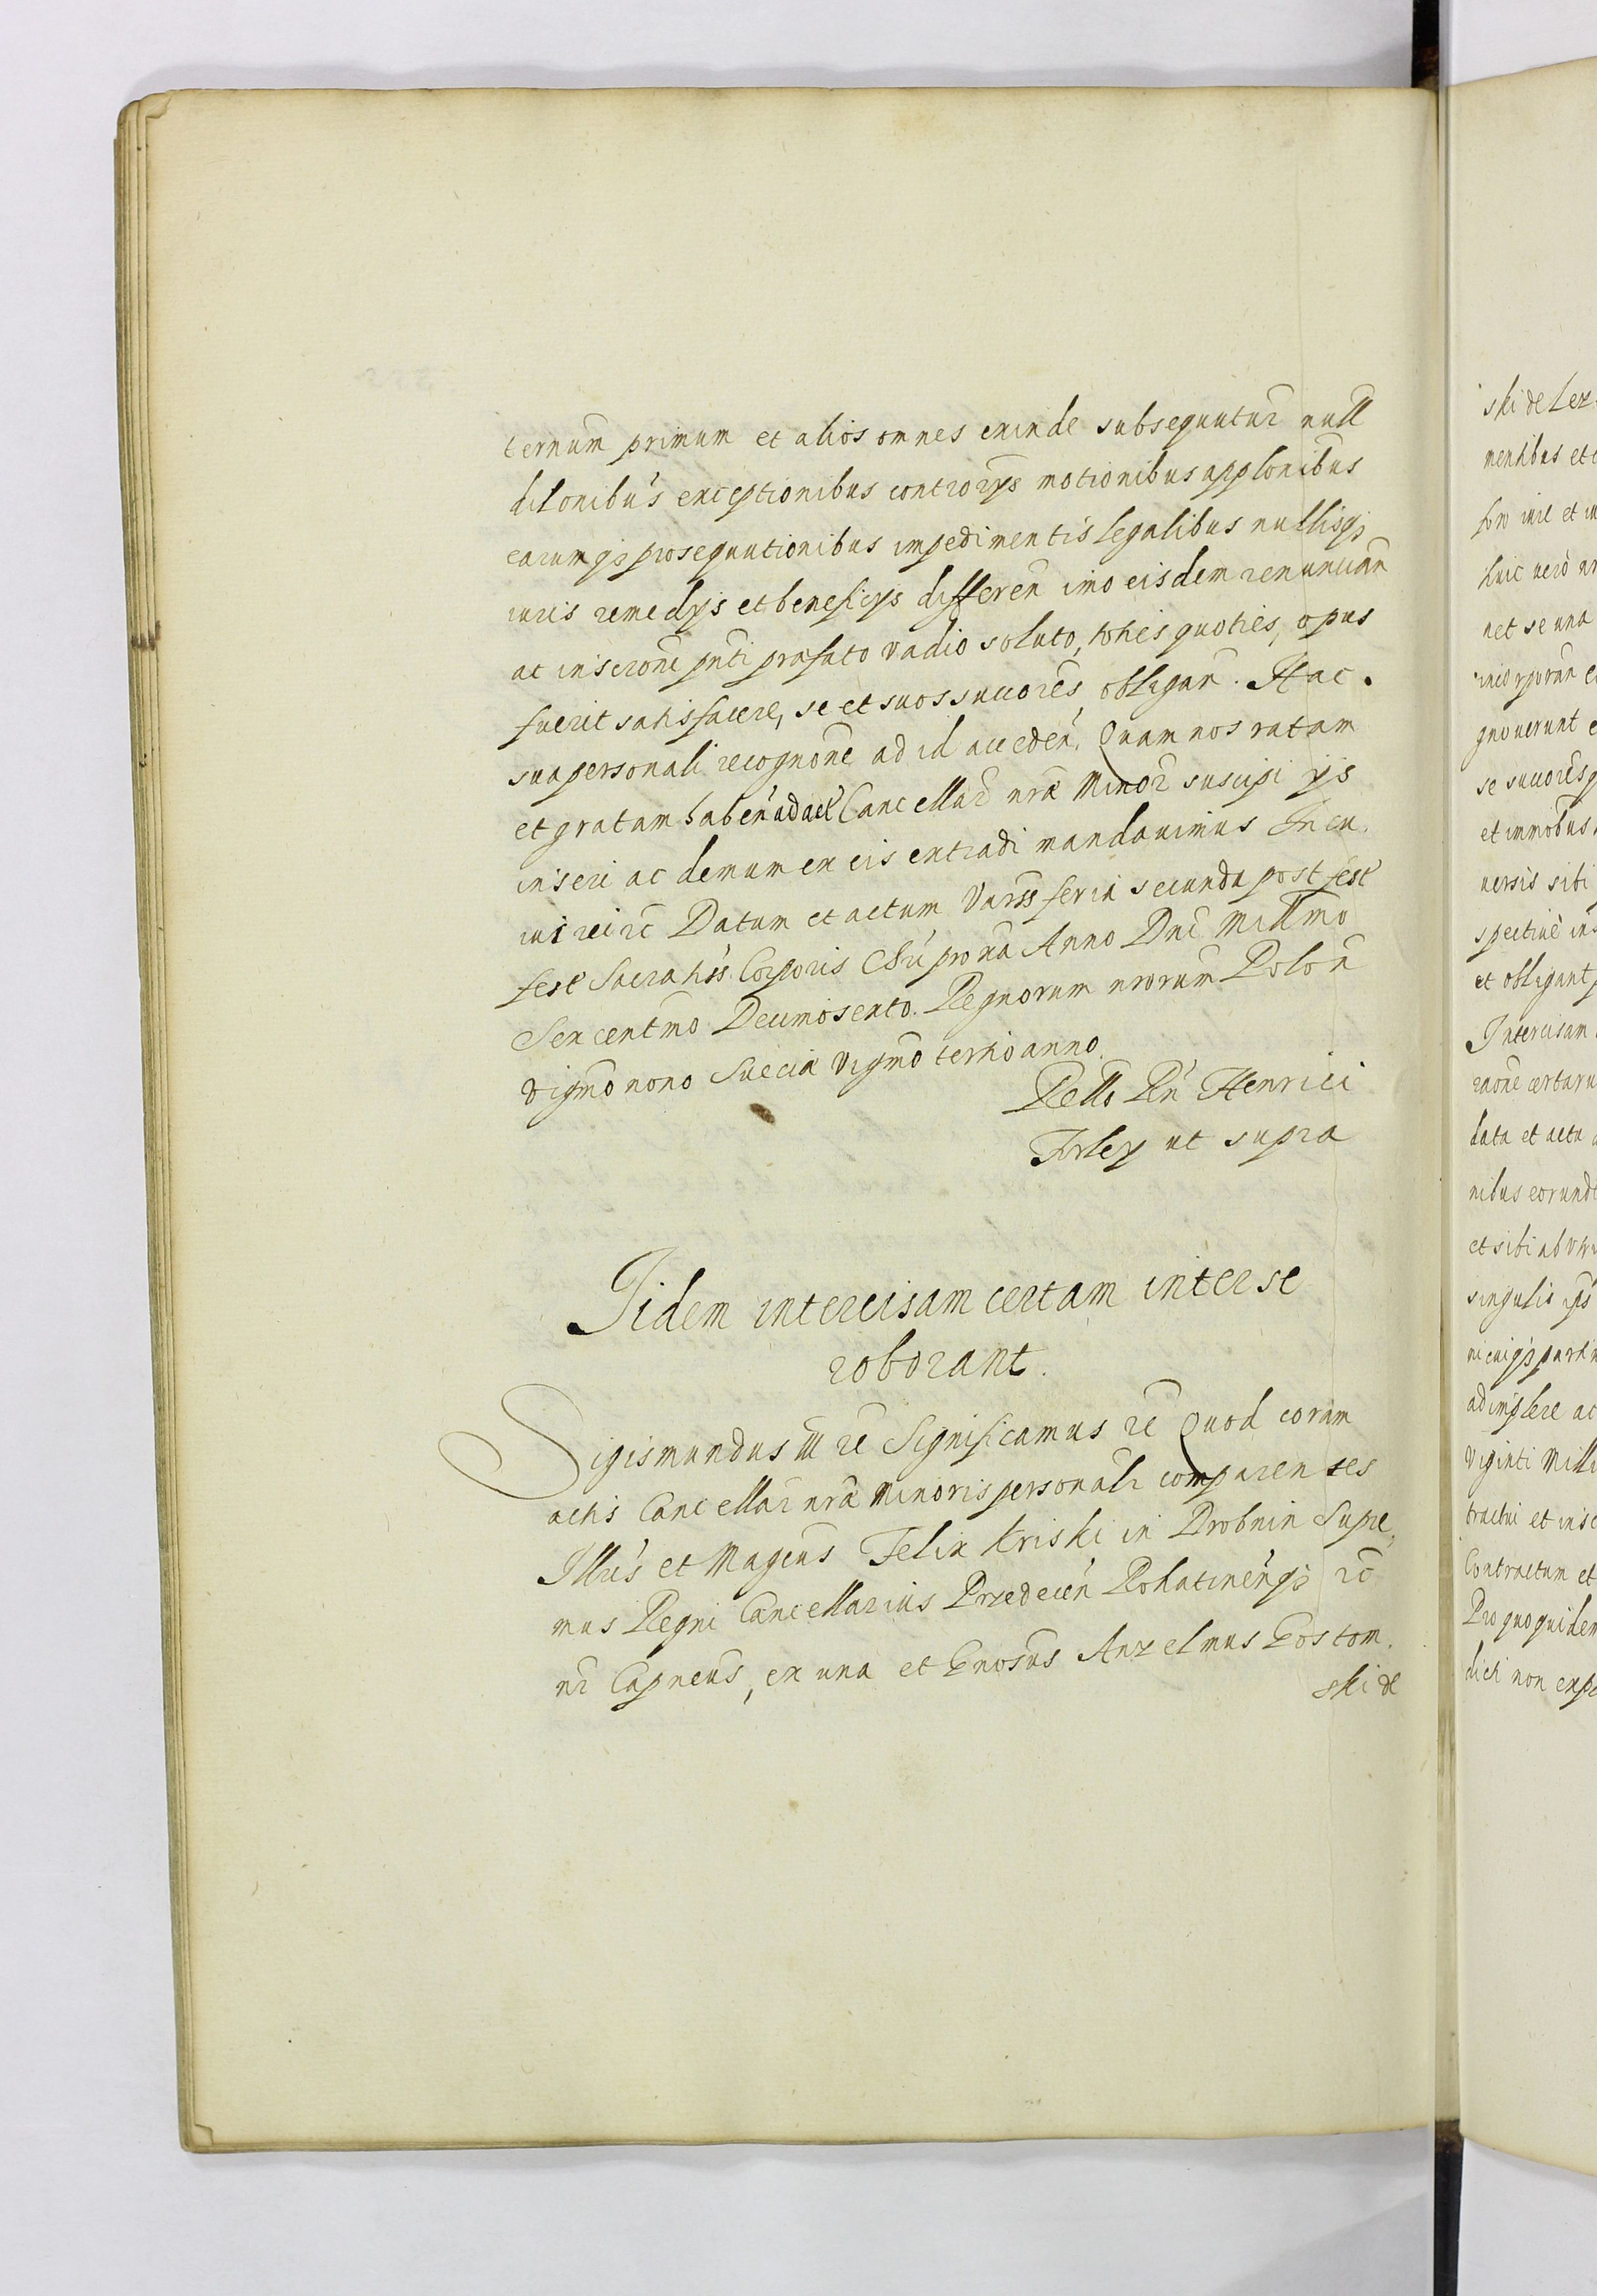 ternum primum et alios omnes exinde subsequutur null
dilonibus exceptionibus controrys motionibus applonibus
earumqз prosequutionibus impedimentis legalibus nullisqз
iuris remedys et beneficys differen imo eisdem renuncian
ac inscrone pnti prafato vadio soluto, toties quoties, opus
fuerit satisfacere, se et suos succores obligan. Hac.
sua personali recognone ad id acceden. Quam nos ratam
et gratam haben ad act Cancellar nrae Minor suscipi ys
inseri ac demum ex eis extradi mandauimus In cu.
ius rei rc Datum et actum Varss feria secunda post fest
fest Sacratiss. Corporis Chri pro xa Anno Dni Millmo
Sexcentmo Decimosexto. Regnorum nrorum Polon
Vigmo nono Sueciae Vigmo tertio anno.
Rello Rn Henrici
Firley ut supra
Iidem intercisam certam inter se
roborant.
Sigismundus III rc Significamus rc Quod coram
actis Cancellar nrae Minoris personalr comparentes
Illris et Magcus Felix Kriski in Drobnin Supre,
mus Regni Cancellarius Przedecen Rohatinenqз rc
nr Capneus, ex una et Gnosus Anzelmus Gostom.
ski de
ski de Lez
mentibus et c
fon iure et in
huic uero
net se una
incorporan e
gnouerunt e
se succores q
et immobus
uersis sibi
spectiue ins
et obligant
Intercisam
raone certaru
data et acta
nibus eorunde
et sibi ab
singulis ips
nicuiqз
adimplere ac
Viginti Milli
tractui et insc
Contractum et
Pro quo quidem
dicti non expe